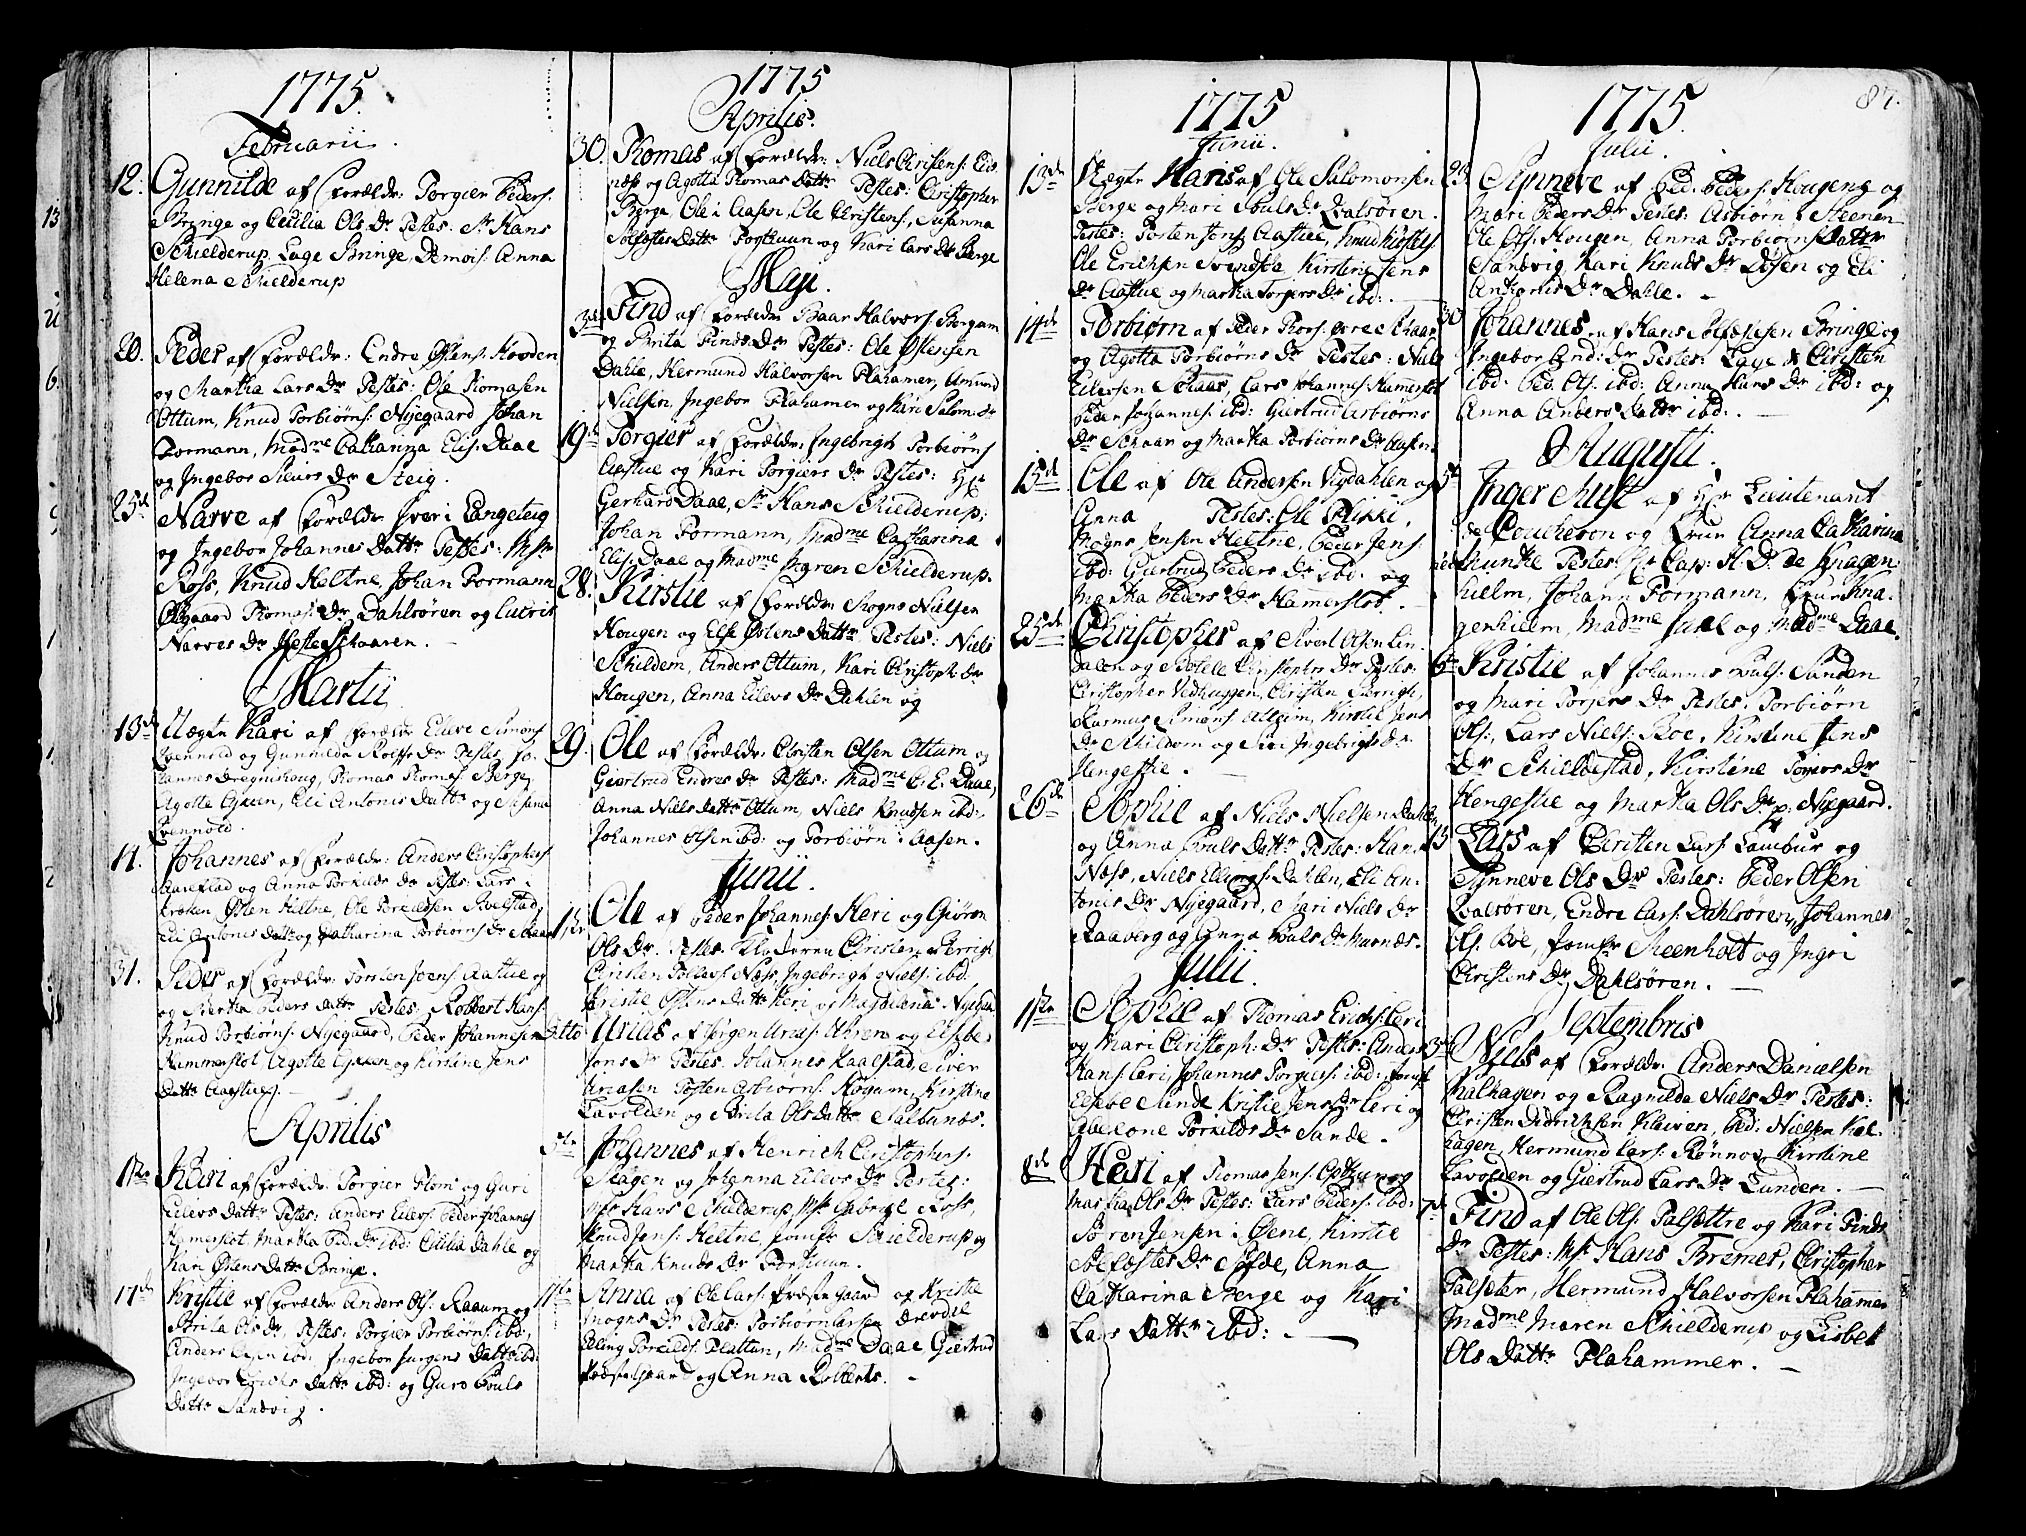 1775.
Februarii.
12. Gunnilde af Forældr: Torgier Peders:
Bringe og Cecilia Ols Dr Testes: Sr Hans
Schielderup, Lage Bringe, Demois: Anna
Helena Schielderup
20. Peder af Forældr: Endre Østens: Hovden
og Martha Lars Dr Testes: Ole Thomasen
Ottum, Knud Torbiørns: Nyegaard Johan
Formann, Madme Catharina Elis: Daae
og Ingebor Siurs Dr Steig.
25de Narve af Forældr Iver i Langeteig
og Ingebor Johannes Dattr Testes: Msr
Ross, Knud Heltne, Johan Formann
Thomas: Dr Dahlsøren og Lucris
Narves Dr Hesteschaaren.
Martii
13de Uægte Kari af Forældr Elieve Simons:
og Gunnilda Dr Testes Jo-
hannes Drægnshoug, Thomas Thomes: Berge,
Agotte, Eli Antonis Dattr og
11. Johannes af Forældr: Anders Christophers:
og Anna Torkilds Dr Testes: Lars i
Kroken, Østen Heltne, Ole
Eli Antonis Dattr og Catharina Torbiørns Dr Skaar
31. Peder af Forældr: Torsten Joens: Aastue og
og Martha Peders Dattr Testes: Robbert Hans:
Knud Torbiørns: Nyegaard, Peder Johannesen
Hammerslot, Agotte og Kirstine Jens
Dattr Aastue.
Aprilis
1ste Kari af Forældr Torgier Flom og Guri
Eilevs Dattr Testes: Anders Eilevs: Peder Johannes
Hamerslot, Martha Ped: Dr ibd: Cecilia Dahle og
Kari Østens Dattr
17de Kristie af Forældr Anders Ols: Raaum og
Brita Ols Dr, Testes: Torgier Torbiørns: ibd,
Anders Olsen ibd: Ingebor Jurgens Dattr ibd:
Ingebor Erichs Dattr ibd: og Guro Pouls
Dattr Sandvig.
1775
Aprilis.
30. Thomas af Forældr: Niels Christens: Eid-
næs og Agotta Thomas Dattr Testes: Christopher
Berge, Ole i Aasen, Ole Christens, Susanna
Solfæstes Dattr og Kari Lars Dr Berge
Maji.
3de Find af Forældr Baar Halvors: Borgum
og Brita Finds Dr Testes: Ole Østensen
Dahle, Hermund Halvorsen Plahamer, Amund
Nielsen, Ingebor Plahamer og Kari Salom: Dr
19de Torgier af Forældr: Ingebrigt Torbiørns
Aastue og Kari Torgiers Dr Testes: Hr
Gerhard Daae, Sr Hans Schielderup,
Johan Formann, Madme Catharina
Elis: Daae og Madme Maren Schielderup.
28. Kirstie af Forældr Mogns Nielsen
Hougen og Else Østens Dattr Testes: Niels
Schildem, Anders Ottum, Kari Christoph: Dr
Hougen, Anna Eilevs Dr Dahlen og
29. Ole af Forældr: Christen Olsen Ottum og
Giertrud Endres Dr Testes: Madme C: E: Daae,
Anna Niels Dattr Ottum, Niels Knudsen ibd:
Johannes Olsen ibd: og Torbiørn i Aasen.
Junii.
1ste Ole af Peder Johannes: Heri og Giøron
Ols Dr. Testes: Klocheren Christen
Christen Tollevs: Næss, Ingebrigt Niels: ibd:
Kristie Østens Dattr Heri og Magdalena Nyegaard
Ditto Urias af Jørgen Urias: Ahrens og Elsebe
Jens Dr Testes: Johannes Kaalstad, Siver
Uriasen, Testen Torbiørns: Røgum, Kirstine
Lavolden og Brita Ols Dattr Saltunæs.
5te Johannes af Henrich Christophers:
Skagen og Johanna Eilevs Dr Testes:
Msr Hans Schielderup, Msr Gabriel Ross,
Knud Jens: Heltne, Jomfr Schielderup og
Martha Knuds Dr
11te Anna af Ole Lars: Præstegaard og Kristie
Mogns Dr Testes: Torbiørn Larsen
Torkilds: Flattun, Madme Daae Giertrud
Præstegaard og Anna Robberts.
1775
Junii.
13de Uægte Haris af Ole Salomonsen
Berge og Mari Pouls Dr Qvalsøren.
Testes: Torsten Jens: Aastue, Knud
Ole Erichsen, Kirstine Jens
Dr Aastue og Martha Torgers Dr ibd:
14de Torbiørn af Peder Thors: Skaar
og Agotta Torbiørns Dr Testes: Niels
Eilevsen Schaar, Lars Johannes: Hamerslot
Peder Johannes: ibd: Giertrud Torbiørns
Dr Schaar og Martha Torbiørns Dr Aasen
15de Ole af Ole Andersen Vigdahlen og
Anna Testes: Ole Flikki,
Mogns Jensen Heltne, Peder Jens:
ibd: Giertrud Peders Dr ibd: og
Martha Peders Dr Hamerslot.
25de Christopher af Sivert Olsen Lin-
dalen og Bothele Christophr Dr Testes:
Christopher Vedhuggen, Christen
Rasmus Simons:, Kirstie Jens
Dr og Siri Ingebrigts Dr
Hengestie.
26de Sophie af Niels Nielsen Dahlen
og Anna Pouls Dattr Testes: Hans
Næss, Niels Ellings: Dahlen, Eli An-
tonis Dr Nyegaard, Mari Niels Dr
Raaberg og Anna Pouls Dr Marnæs.
Julii.
11te Sophie af Thomas Erichs: Leri
og Mari Christoph: Dr Testes: Anders
Hans: Leri, Johannes Torgiers: ibd: Jomfr
Elsebe Minde, Kristie Jens Dr Leri og
Torkilds Dr Sande.
8de Kari af Thomas Jens: og
Martha Ols Dr Testes: Lars Peders: ibd:
Søren Jensen i Øene, Kirstie
Solfæstes Dr Solde, Anna
Catharina Berge og Kari
Lars Dattr ibd:
1775. 87.
Julii.
23. Synneve af Ped: Peders: Hougene og
Mari Peders Dr Testes: Asbiørn i Steenen
Ole Ols: Hougen, Anna Torbiørns Dattr
Sandvig, Kari Knuds Dr Døsen og Eli
Anthonis Dr Dahle.
30 Johannes af Hans Bringe og
Ingebor And: Dr Testes: Lage & Christen
ibd: Ped: Ols: ibd: Anna Hans Dr ibd: og
Anna Anders Dattr ibd:
Augusti.
5te Inger Aust af Hr Lieutenant
de Coucheron og Frue Anna Catharina
Munthe Testes: Hr Cap: H: D: de Knagen-
hielm, Johann Formann, Frue Kna-
genhielm, Madme Juel og Madme Daae.
6te Kristie af Johannes Pouls: Sanden
og Mari Torgers Dr Testes: Torbiørn
Ols:, Lars Niels: Bøe, Kirstine Jens
Dr Schieldestad, Kirstine Torgers Dr
Hengestie og Martha Ols Dr p: Nyegaard.
13 Lars af Christen Lars: Lambur og
Synneve Ols Dr Testes: Peder Olsen
Qvalsøren, Endre Lars: Dahlsøren, Johannes
Ols: Bøe, Jomfr Steenholt og Ingri
Christens Dr Dahlsøren.
Septembris
3de Niels af Forældr: Anders Danielsen
Kalhagen og Ragnilda Niels Dr Testes:
Christen Didrichsen Kleiven, Ped: Nielsen Kal-
hagen, Hermund Lars: Rønnov, Kirstine
Lavolden og Giertrud Lars Dr Lunden.
7de Find af Ole Ols: Talsættre og Kari Finds
Dr Testes: Msr Hans Bremer, Christopher
Talseter, Hermund Halvorsen Plahammer
Madme Maren Schielderup og Lisbet
Ols Dattr Plahammer.